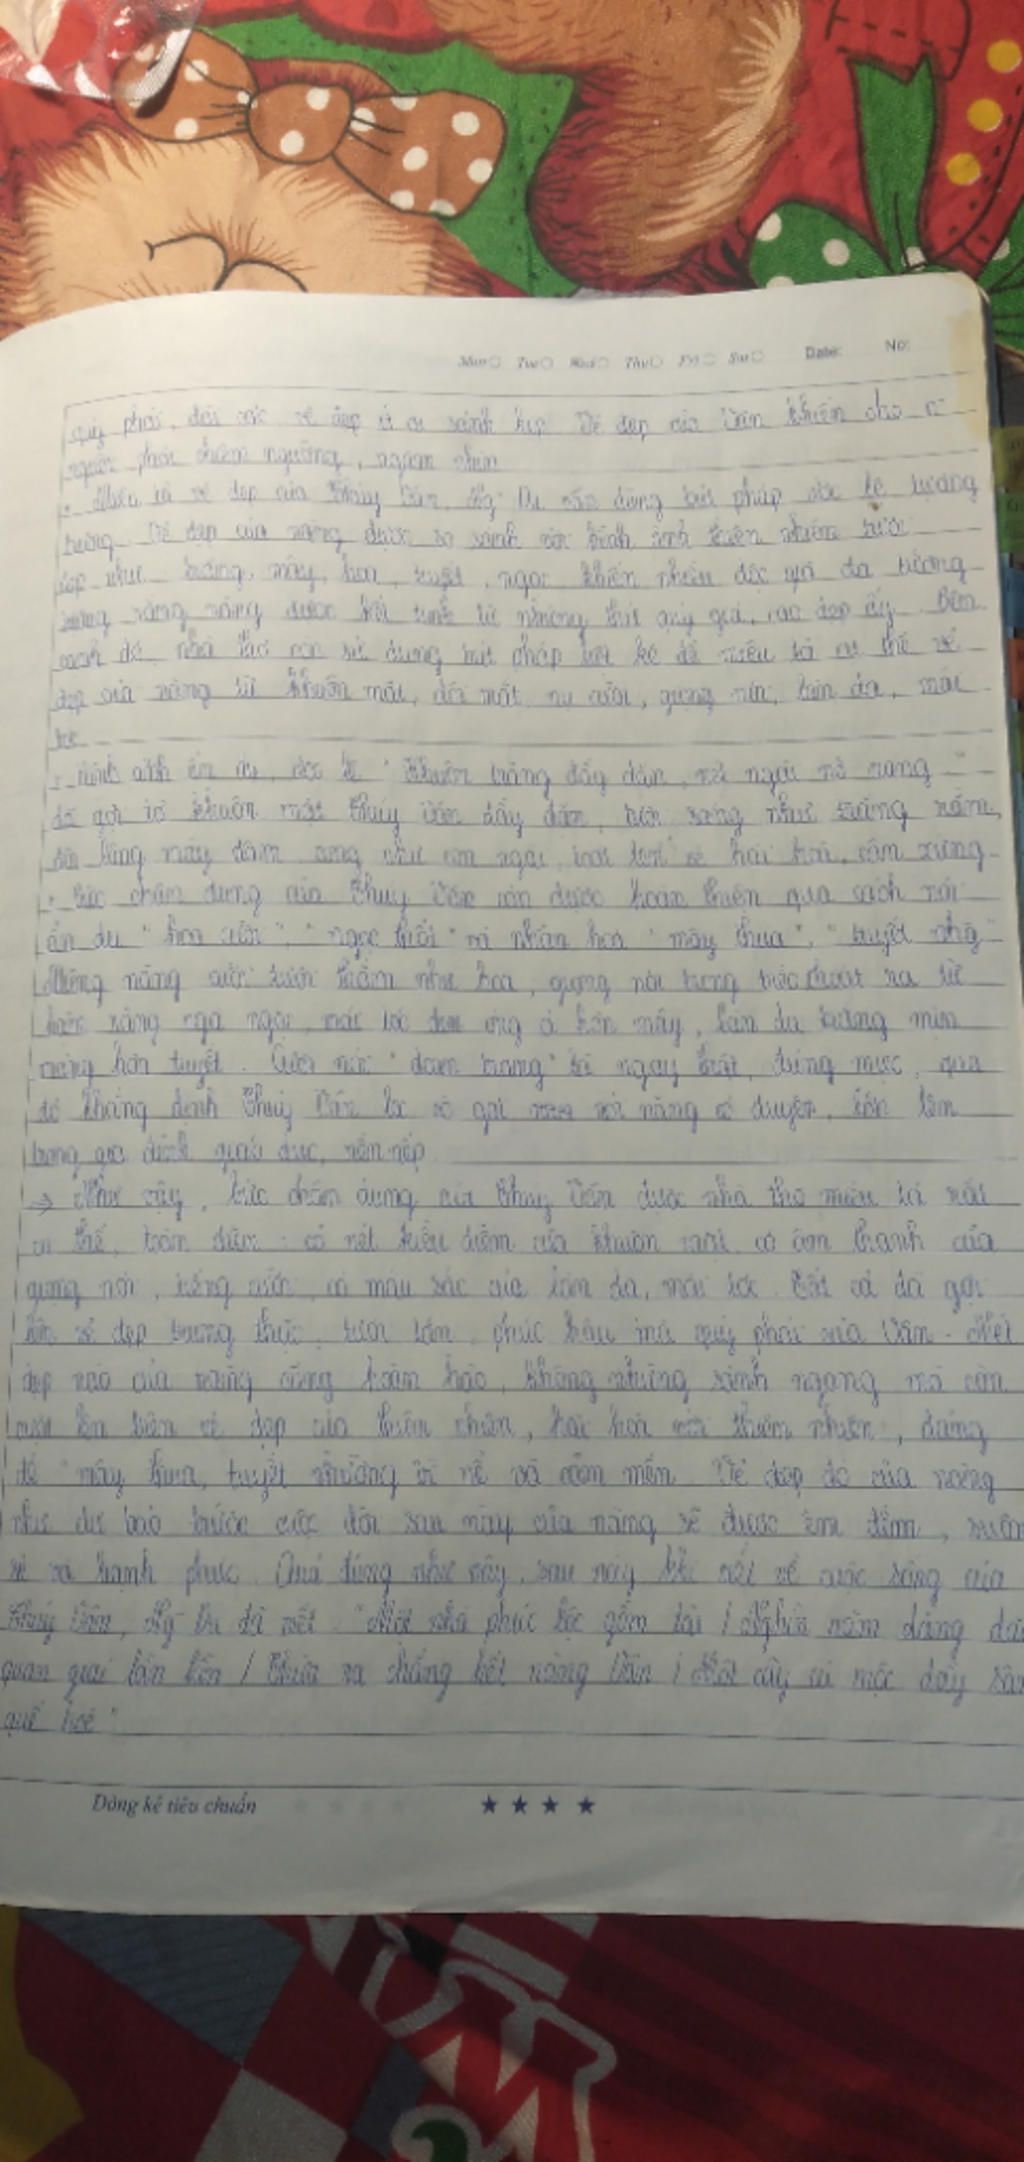 Mon Tue Wed Thu Fri Sat Date: No:
quý phái, vẻ đẹp ít ai sánh kịp. Vẻ đẹp của Vân khiến cho
người phải chiêm ngưỡng, ngắm nhìn
Miêu tả vẻ đẹp của Thúy Vân, Ng Du vận dụng bút pháp ước lệ tượng
trưng. Vẻ đẹp của nàng được so sánh với hình ảnh thiên nhiên tươi
đẹp như trăng, mây, hoa, tuyết, ngọc khiến nhiều độc giả đã tưởng
tượng rằng nàng được kết tinh từ những thứ quý giá, cao đẹp ấy. Bên
cạnh đó, nhà còn sử dụng bút pháp liệt kê để miêu tả cụ thể vẻ
đẹp của nàng từ khuôn mặt, đôi mắt, nụ cười, giọng nói, làn da, mái
tóc
Hình ảnh ẩn dụ, ước lệ "Khuôn trăng đầy đặn, nét ngài nở nang"
đã gợi tả khuôn mặt Thúy Vân đầy đặn, sáng như trăng rằm,
đôi lông mày đậm như con ngài, vẻ hài hoà, cân xứng
Bức chân dung của Thúy Vân còn được hoàn thiện qua cách nói
ẩn dụ "hoa cười", "ngọc thốt" và nhân hoá "mây thua", "tuyết nhường"
Miệng nàng cười tươi thắm như hoa, giọng nói trong trẻo thoát ra từ
hàm răng ngà ngọc, mái tóc óng ả hơn mây, làn da trắng mịn
màng hơn tuyết. "đoan trang" là ngay thật, đúng mực, qua
đó khẳng định Thúy Vân nàng có duyên, lớn lên
trong gia đình giáo dục, nền nếp
→ Như vậy, bức chân dung của Thúy Vân được nhà thơ miêu tả rất
cụ thể, toàn diện: có nét kiều diễm của khuôn mặt, có âm thanh của
giọng nói, tiếng cười, có màu sắc của làn da, mái tóc. Tất cả đã gợi
lên vẻ đẹp trung thực, phúc hậu mà quý phái của Vân. Nét
đẹp nào của nàng cũng hoàn hảo, không những sánh ngang mà còn
vượt lên trên vẻ đẹp của thiên nhiên, hài hoà với thiên nhiên, đáng
để mây thua, tuyết nhường vì nể và cảm mến. Vẻ đẹp đó của nàng
như dự báo trước cuộc đời sau này của nàng sẽ được êm đềm, suôn
sẻ và hạnh phúc. Quả đúng như vậy, sau này khi nói về cuộc sống của
Thúy Vân, Ng Du đã viết: "Một nhà phúc lộc gồm hai / Nghìn năm dằng dặc
quan giai lần lần / Thừa ra chẳng hết nàng Vân / Một cây cù mộc đầy sân
quế hoè"
Dòng kẻ tiêu chuẩn